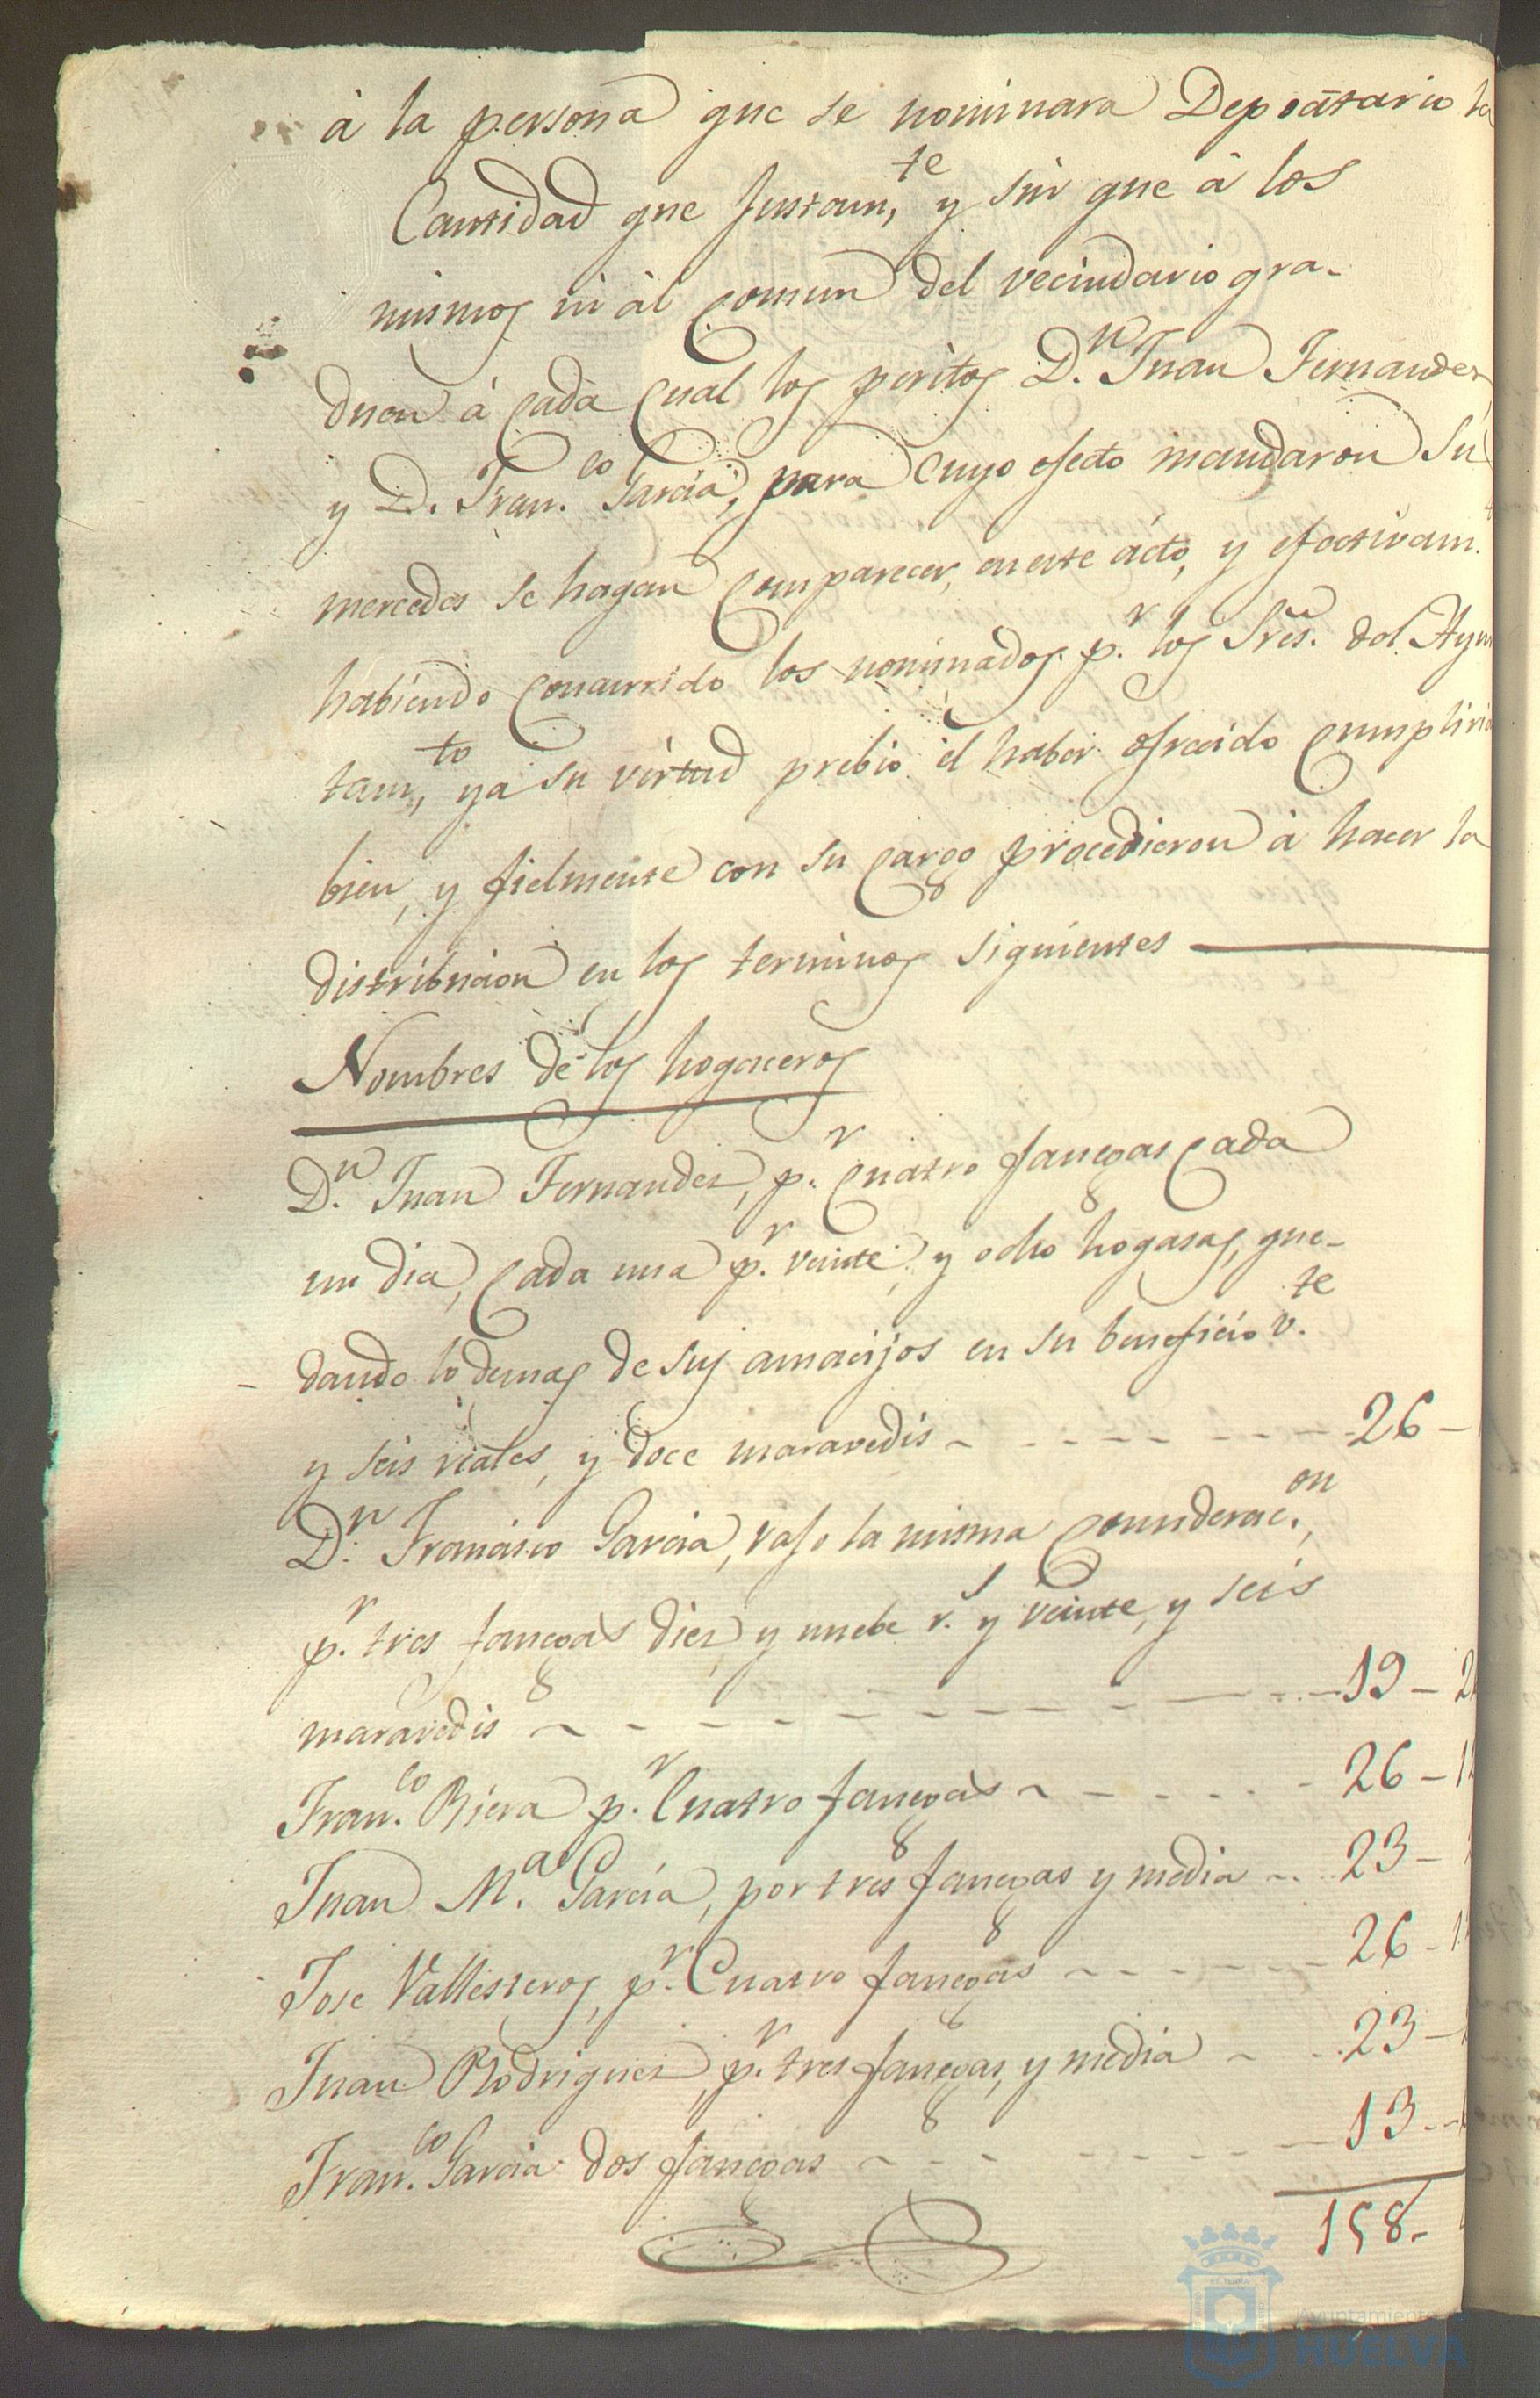 à la persona que se nominara Depocitario la
Cantidad que Justam,te y sin que à los
mismos ni àl comun del vecindario gra-
duen à cada cual los peritos D.n Juan Fernandez,
y D. Fran.co Garcia, para cuyo efecto mandaron Su
mercedes se hagan comparecer, en este ácto, y efectivam.
habiendo concurrido los nominados p.r los Sres. del Ayun
tam,to ya su virtud prebio el haber ofrecido cumplirian
bien, y fielmente con su cargo procedieron à hacer la
distribucion en los terminos siguientes
Nombres de los hogaceros
D.n Juan Fernandez, p.r cuatro fanegas cada
un dia, cada una p.r veinte, y ocho hogasas, que-
dando lo demas de sus amacijos en su beneficio v.te
y seis reales, y doce maravedis - 26 -
D.n Francisco Garcia, vajo la misma considerac.on,
p.r tres fanegas diez y nuebe r.s y veinte, y seis
maravedis - 19 - 2
Fran.co Riera p.r Cuatro fanegas - 26 - 12
Juan M.a Garcia, por tres fanegas y media - 23 -
Jose Vallesteros, p.r Cuatro fanegas - 26 - 1
Juan Rodriguez, p.r tres fanegas, y media - 23 -
Fran.co Garcia dos fanegas - 13 -
158-
Ayuntamiento
HUELVA